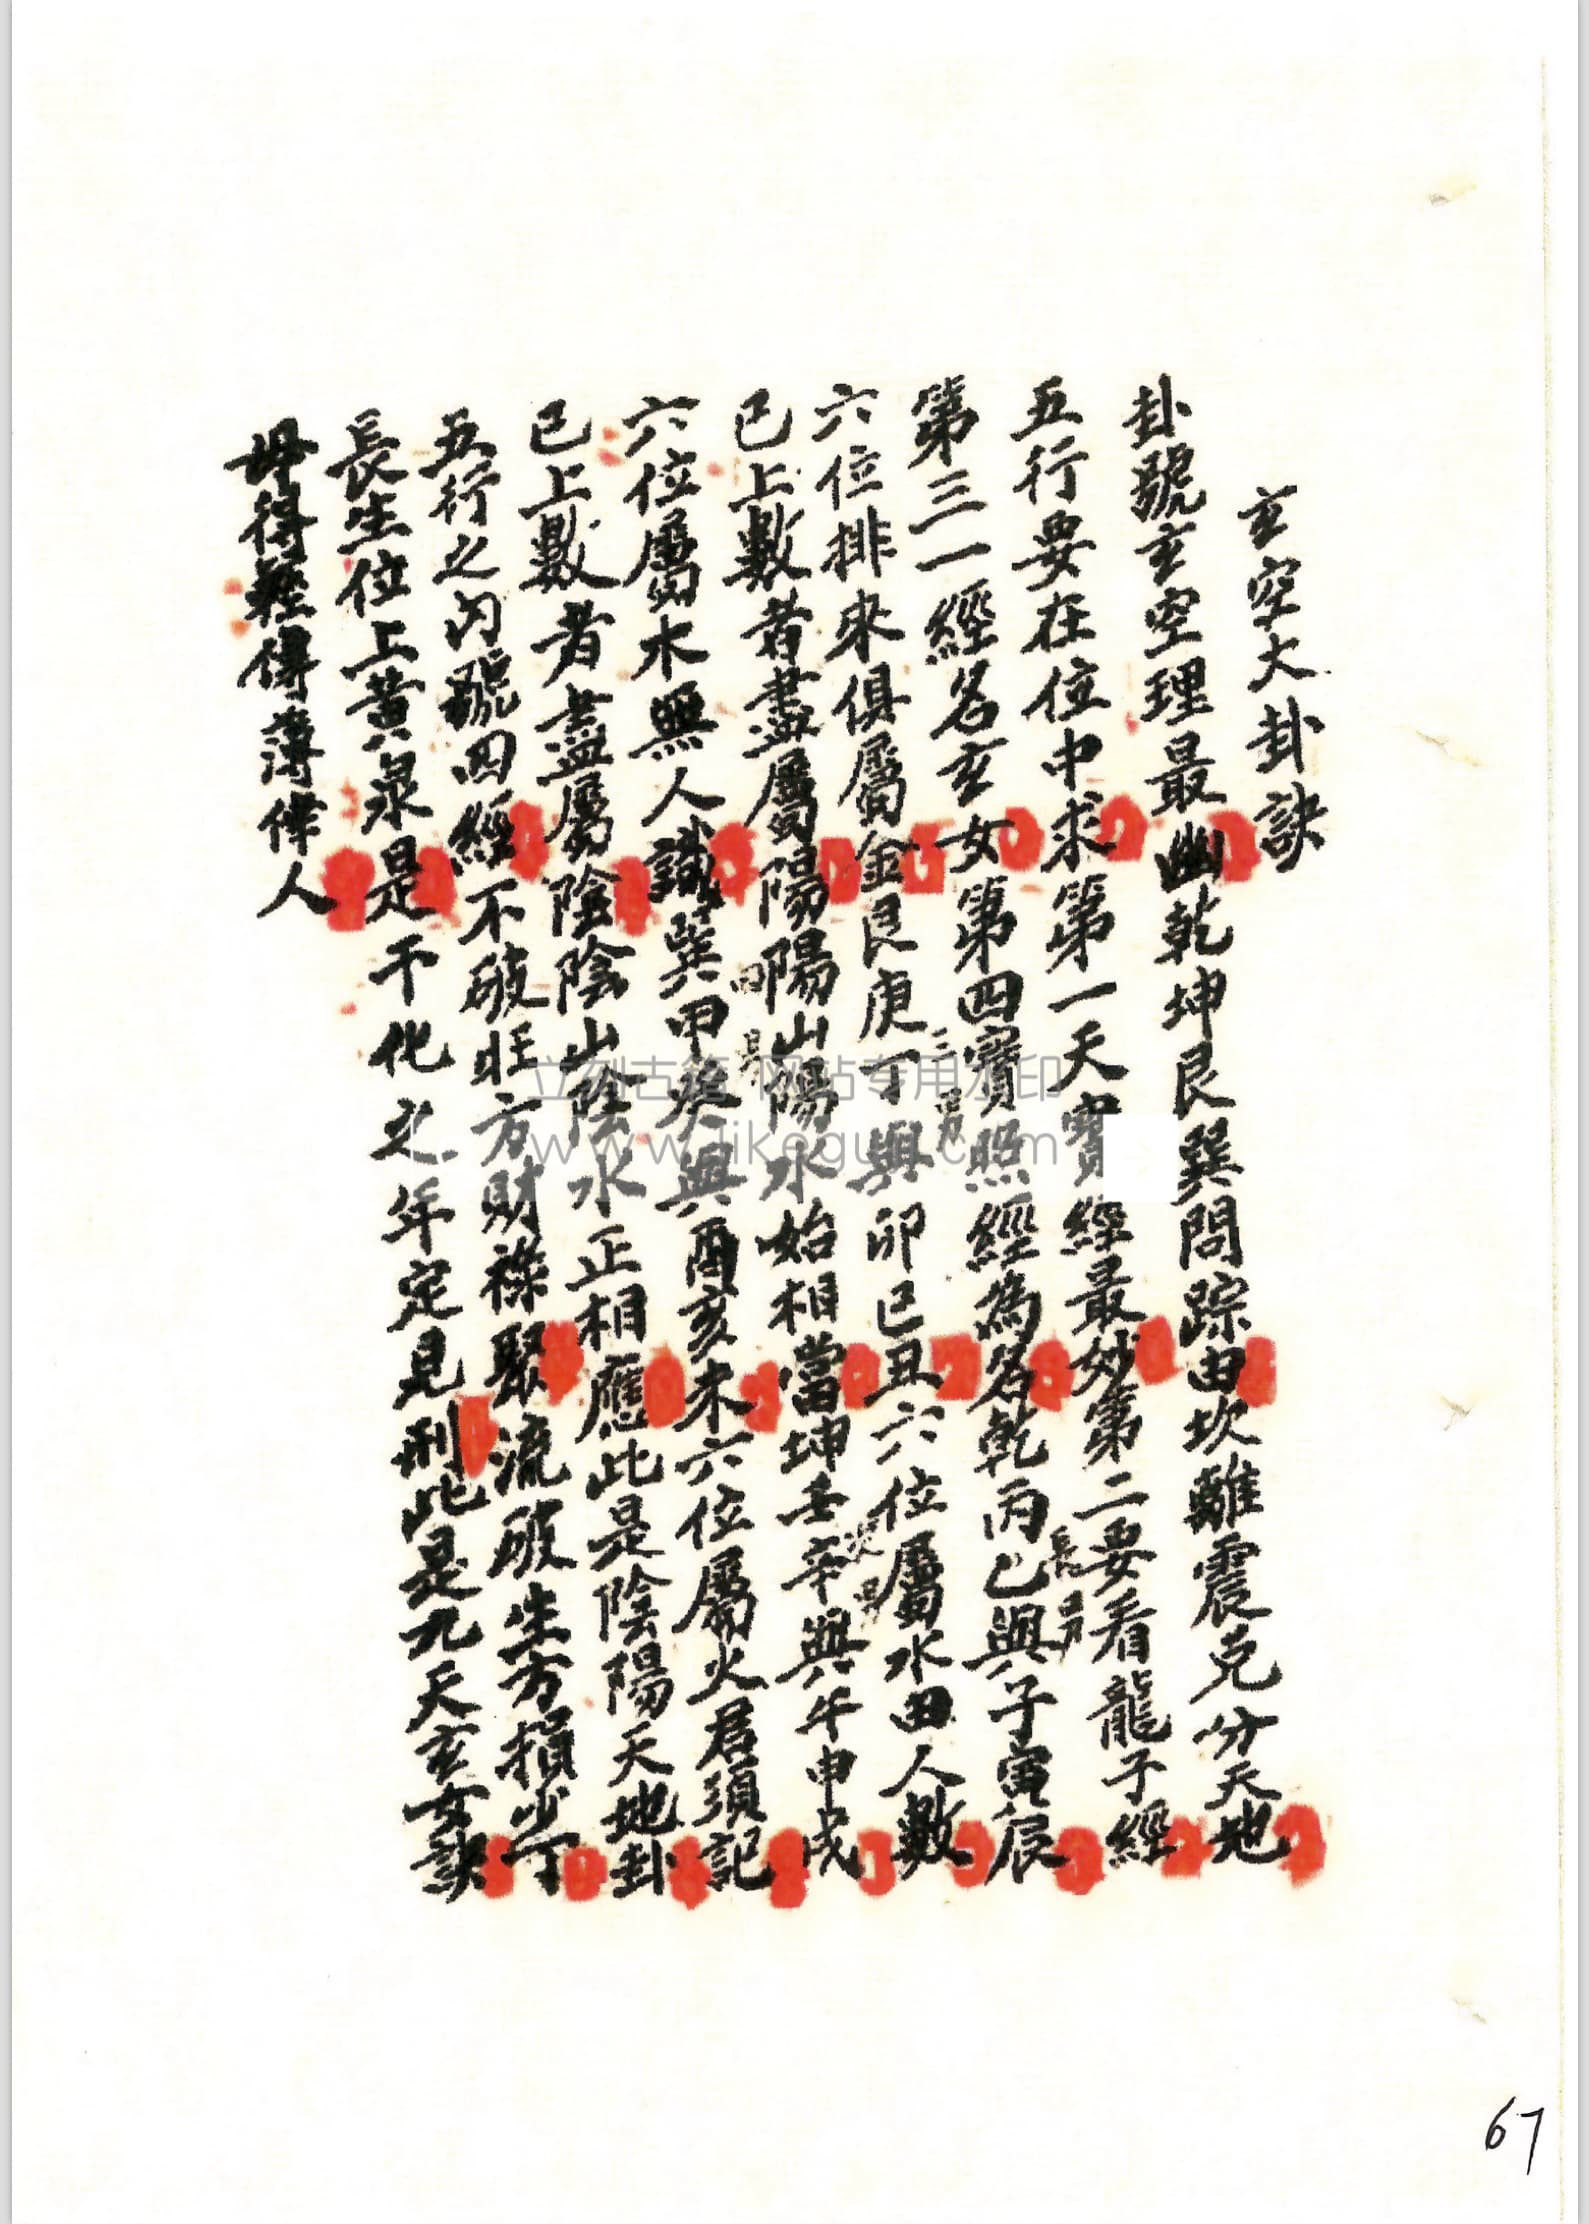 玄空大卦訣
卦號玄空理最幽乾坤艮巽問踪由坎離震兌分天地
五行要在位中求第一天寶經最妙第二要看龍子經
第三一經名玄女第四寶照經為名乾丙乙與子寅辰
長男
六位排來俱屬金艮庚丁與卯巳丑六位屬水田人數
三男
已上數者盡屬陽陽山陽水始相當坤壬辛與午申戌
六位屬木無人識巽甲癸與酉亥未六位屬火君須記
已上數者盡屬陰陰山陰水正相應此是陰陽天地卦
五行之內號四經不破旺方財祿聚流破生方損少丁
長生位上黃泉是干化之年定見刑此是九天玄女訣
毋得輕傳薄倖人
立刻古籍 网站专用水印
www.likeguji.com
67